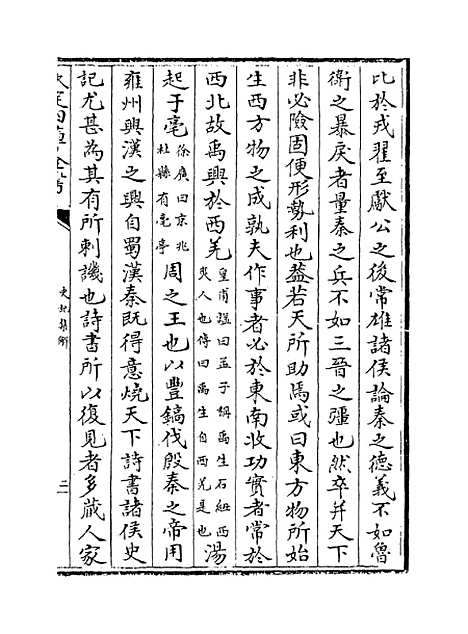 比於戎翟至獻公之後常雄諸侯論秦之德義不如魯
衛之暴戾者量秦之兵不如三晉之彊也然卒并天下
非必險固便形勢利也蓋若天所助焉或曰東方物所始
生西方物之成孰夫作事者必於東南收功實者常於
西北故禹興於西羌皇甫謐曰孟子稱禹生石紐西夷人也傳曰禹生自西羌是也湯
起于亳徐廣曰京兆杜縣有亳亭周之王也以豐鎬伐殷秦之帝用
雍州興漢之興自蜀漢秦既得意燒天下詩書諸侯史
記尤甚為其有所刺譏也詩書所以復見者多藏人家
欽定四庫全書
史記集解
二